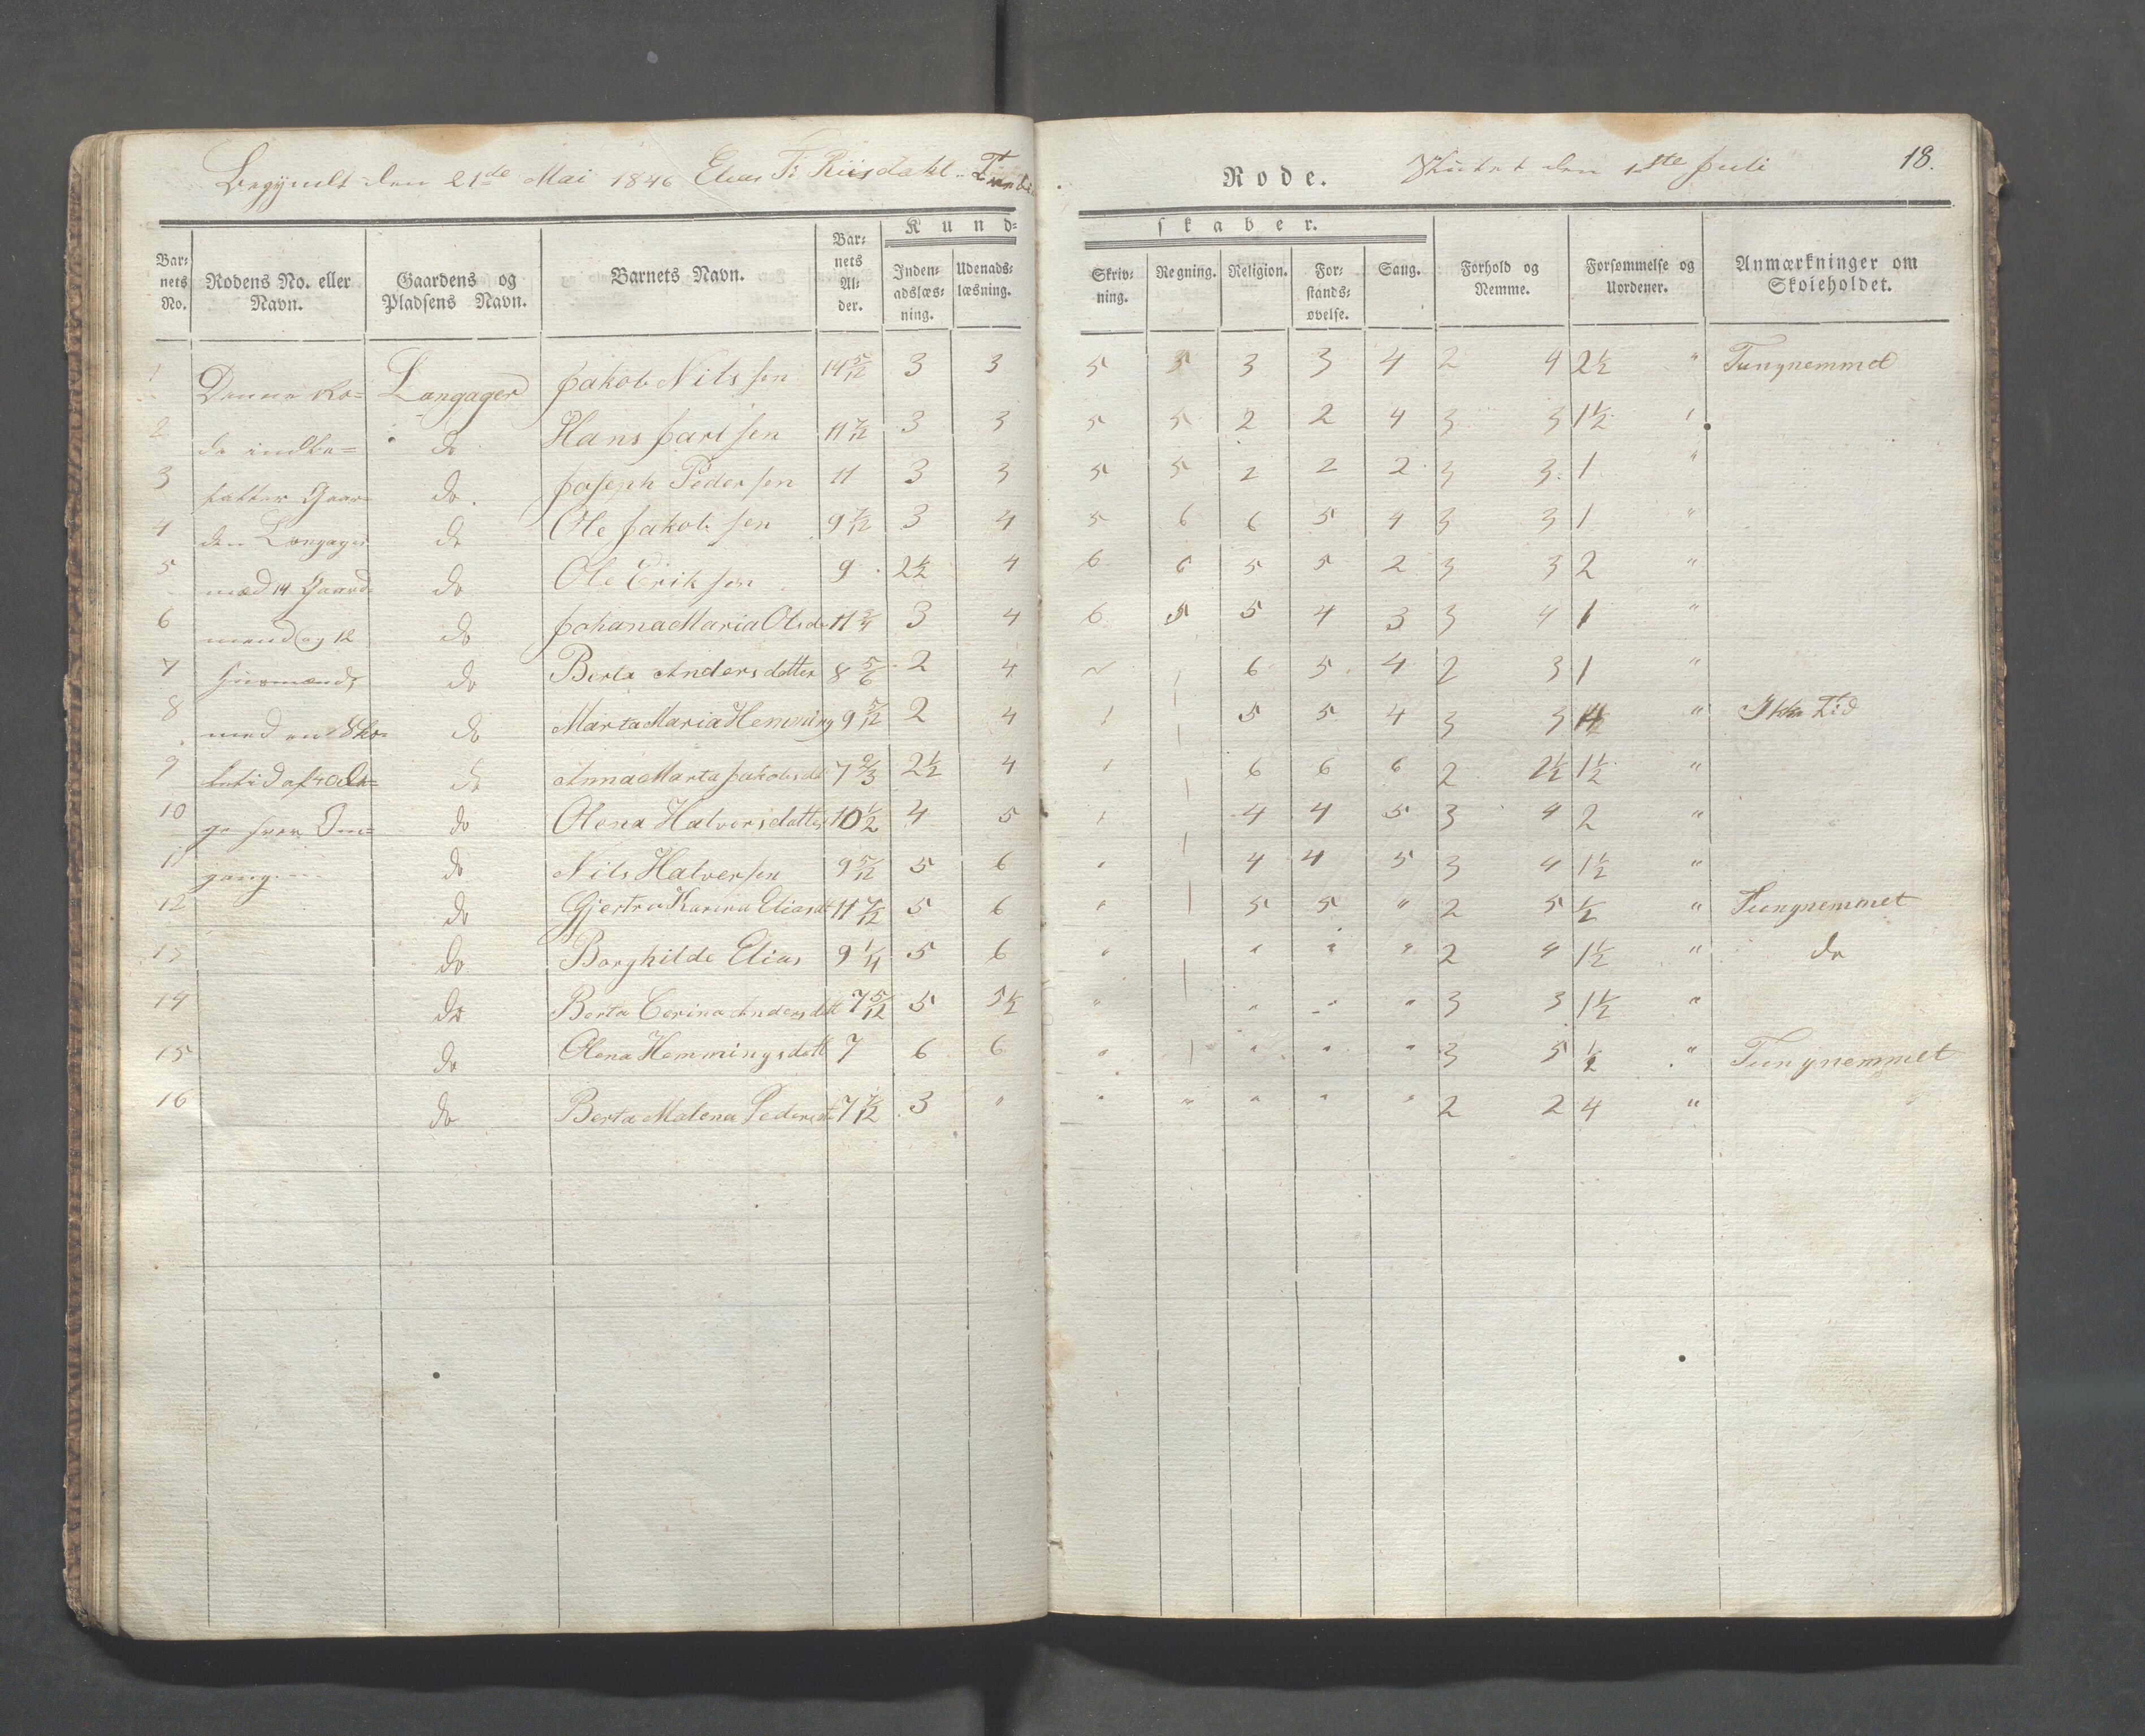 Begyndt den 21de Mai 1846 Elias T: Riisdahl
Rode. Sluttet den 1ste Juli 18.
Barnets No. Rodens No. eller Navn. Gaardens og Pladsens Navn. Barnets Navn. Barnets Alder. Kundskaber. Indenadslæsning. Udenadslæsning. Skrivning. Regning. Religion. Forstandsøvelse. Sang. Forhold og Nemme. Forsømmelse og Uordener. Anmærkninger om Skoleholdet.
1 Denne Ro= Langager Jakob Nilssen 14 5/12 3 3 5 5 3 3 4 2 4 2½ " Tungnemmed
2 de indbe= do Hans Jarlsen 11 7/12 3 3 5 5 2 2 4 3 3 1½ "
3 fatter Gaar= do Joseph Pedersen 11 3 3 5 5 2 2 2 3 3 1 "
4 den Langager do Ole Jakobsen 9 7/12 3 4 5 6 6 5 4 3 3 1 "
5 med 14 Gaard= do Ole Eriksen 9 2½ 4 6 6 5 5 2 3 3 2 "
6 mend og 12 do Johana Maria Olsd 11 3/4 3 4 6 5 5 4 3 3 4 1 "
7 Huusmænd, do Berta Andersdatter 8 5/6 2 4 6 5 4 2 3 1 "
8 med en Sko= do Marta Maria Hemming 9 5/12 2 4 5 5 4 3 3 " Ikke Tid
9 letid af do Anna Marta Jakobsd 7 2/3 2½ 4 6 6 6 2 2½ 1½ "
10 ge hver Om= do Olena Halversdatter 10½ 4 5 4 4 5 3 4 2 "
11 gang. do Nils Halversen 9 5/12 5 6 " 4 4 5 3 4 1½ "
12 do Gjertru Karina Eliasd 11 7/12 5 6 " 5 5 " 2 5 ½ " Tungnemmet
13 do Borghilde Elias 9 1/4 5 6 " " " " 2 4 1½ " do
14 do Berta Cerina Andersdatt 7 5/12 5 5½ " " " " 3 3 1½ "
15 do Olena Hemmingsdatt 7 6 6 " " " " 3 5 ½ " Tungnemmet
16 do Berta Malena Pedersd 7 7/12 3 " " " " " " 2 2 4 " "